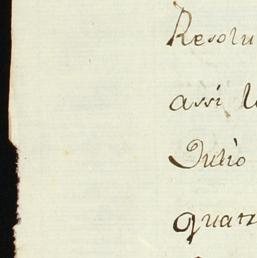 Resolu
assi l
Julio
quatr